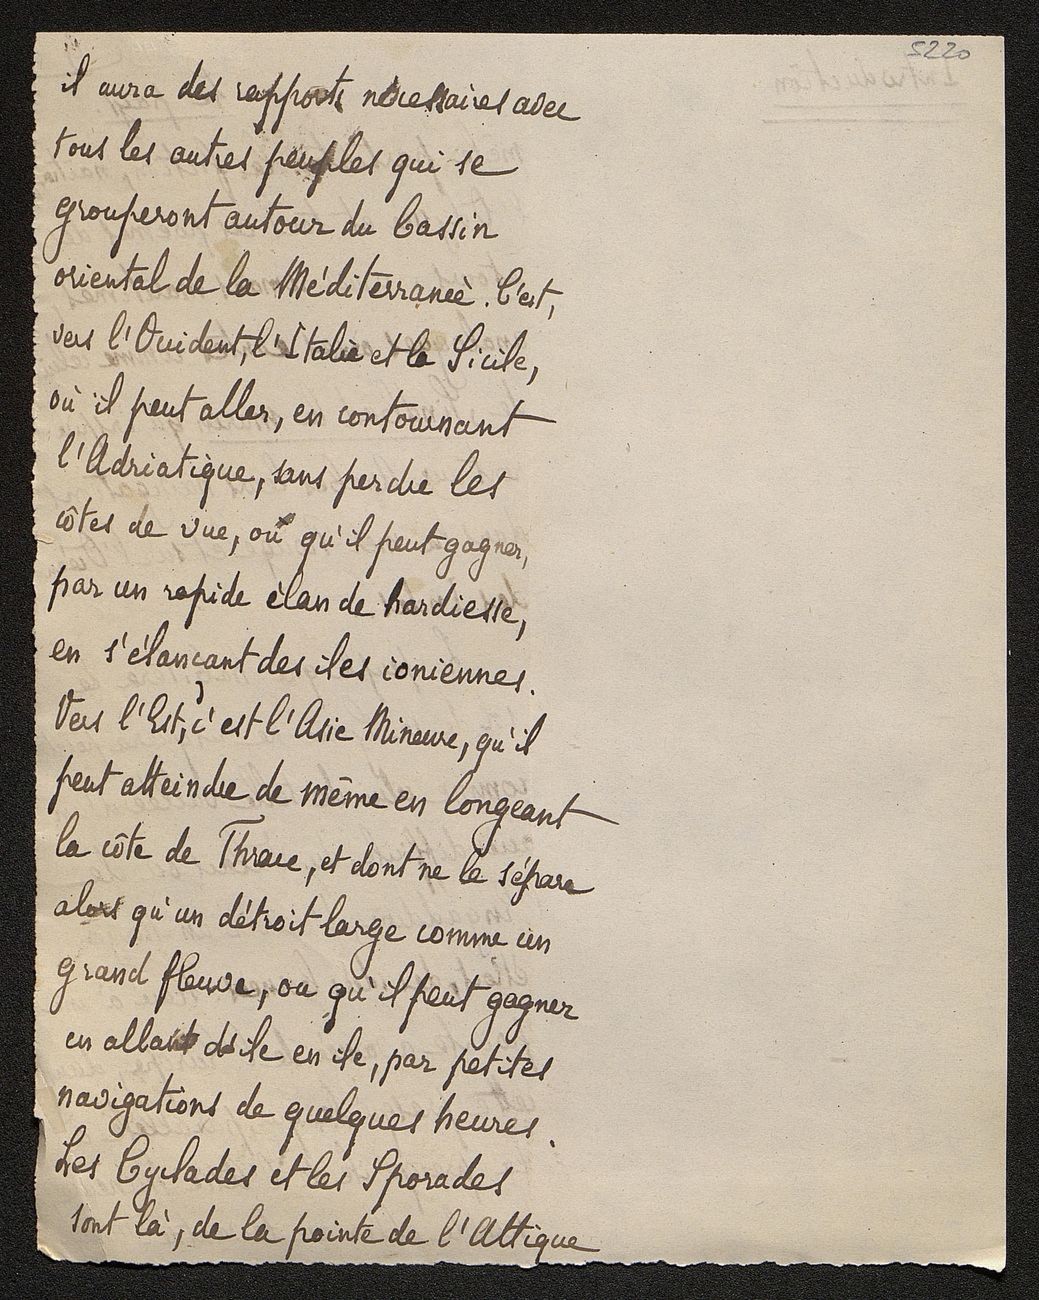 5220
il aura des rapports nécessaires avec
tous les autres peuples qui se
grouperont autour du bassin
oriental de la Méditerranée. C'est,
vers l'Occident, l'Italie et la Sicile,
où il peut aller, en contournant
l'Adriatique, sans perdre les
côtes de vue, ou qu'il peut gagner,
par un rapide élan de hardiesse,
en s'élançant des iles ioniennes.
Vers l'Est, c'est l'Asie Mineure, qu'il
peut atteindre de même en longeant
la côte de Thrace, et dont ne le sépare
alors qu'un détroit large comme un
grand fleuve, ou qu'il peut gagner
en allant d'ile en ile, par petites
navigations de quelques heures.
Les Cyclades et les Sporades
sont là, de la pointe de l'Attique